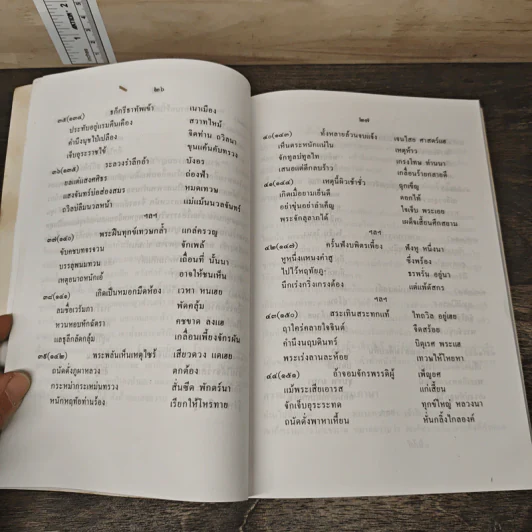 ๒๖
๓๕(๑๓๔) ยกักรีธาทัพเข้า เนาเมือง
ประทับอยู่แรมคืนเคือง สวาทไหม้
คำนึงนุชไปเปลือง จิตท่าน ถวิลนา
เจ็บอุระราชไข้ ขุนแค้นคับทรวง
๓๖(๑๓๕) ระลวงว่าลึกล้ำ บังอร
ยลแต่แสงศศิธร ถ่องฟ้า
แสงจันทร์บ่ส่องสมร หมดเทวษ
ถวิลบ่ลืมนวลหน้า แม่แม้นนวลจันทร์
ฯลฯ
๓๗(๑๔๐) พระฝืนทุกข์เทวษกล้ำ แกล่ครวญ
ขับคชบทจรจวน จักเพล้
บรรลุพนมทวน เถื่อนที่ นั้นนา
เหตุอนาถหนักเอ้ อาจให้ชนเห็น
๓๘(๑๔๑) เกิดเป็นหมอกมืดห้อง เวหา หนเฮย
ลมชื่อเวรัมภา พัดคลุ้ม
หวนหอบหักฉัตรา คชขาด ลงแฮ
แลธุลีกลัดกลุ้ม เกลื่อนเพี้ยงจักรผัน
๓๙(๑๔๒) พระพลันเห็นเหตุไซร้ เสียวดวง แดเฮย
ถนัดดั่งภูผาหลวง ตกต้อง
กระหม่ากระเหม่นทรวง สั่นซีด พักตร์นา
หนักหฤทัยท่านร้อง เรียกให้โหรทาย
๒๗
๔๐(๑๔๓) ทั้งหลายล้วนจบแจ้ง เจนวิสท ศาสตร์แฮ
เห็นตระหนักแน่ใน เหตุห้าว
จักทูลบ่ทูลไท เกรงโทษ ท่านนา
เสนอแต่ดีกลบร้าว เกลื่อนร้ายกลายดี
๔๑(๑๔๔) เหตุนี้ผิวเช้าชั่ว ฉุกเข็ญ
เกิดเมื่อยามเย็นดี ดอกไท้
อย่าขุ่นอย่าลำเค็ญ ใจเจ็บ พระเอย
พระจักลุลาภได้ เผด็จเสี้ยนศึกสยาม
ฯลฯ
๔๒(๑๔๗) ครั้นฟังบพิตรเพี้ยง ฟังหู หนึ่งนา
หูหนึ่งแหนงคำสู ซึ่งพร้อง
ไป่ไว้หฤทัยภู- ธรพรั่น อยู่นา
นึกเร่งกริ่งเกรงต้อง แต่แพ้ดัสกร
ฯลฯ
๔๓(๑๕๐) สระเทินสระทกแท้ ไทยถวิล อยู่เฮย
ฤาใคร่คลายใจจินต์ จืดสร้อย
คำนึงนฤบดินทร์ บิตุเรศ พระแฮ
พระเร่งลานละห้อย เทวษไห้โหยหา
๔๔(๑๕๑) อ้าจอมจักรพรรดิผู้ เพ็ญยศ
แม้พระเสียเอารส แก่เสี้ยน
จักเจ็บอุระระทด ทุกข์ใหญ่ หลวงนา
ถนัดดั่งพาหาเหี้ยน หั่นกลิ้งไกลองค์